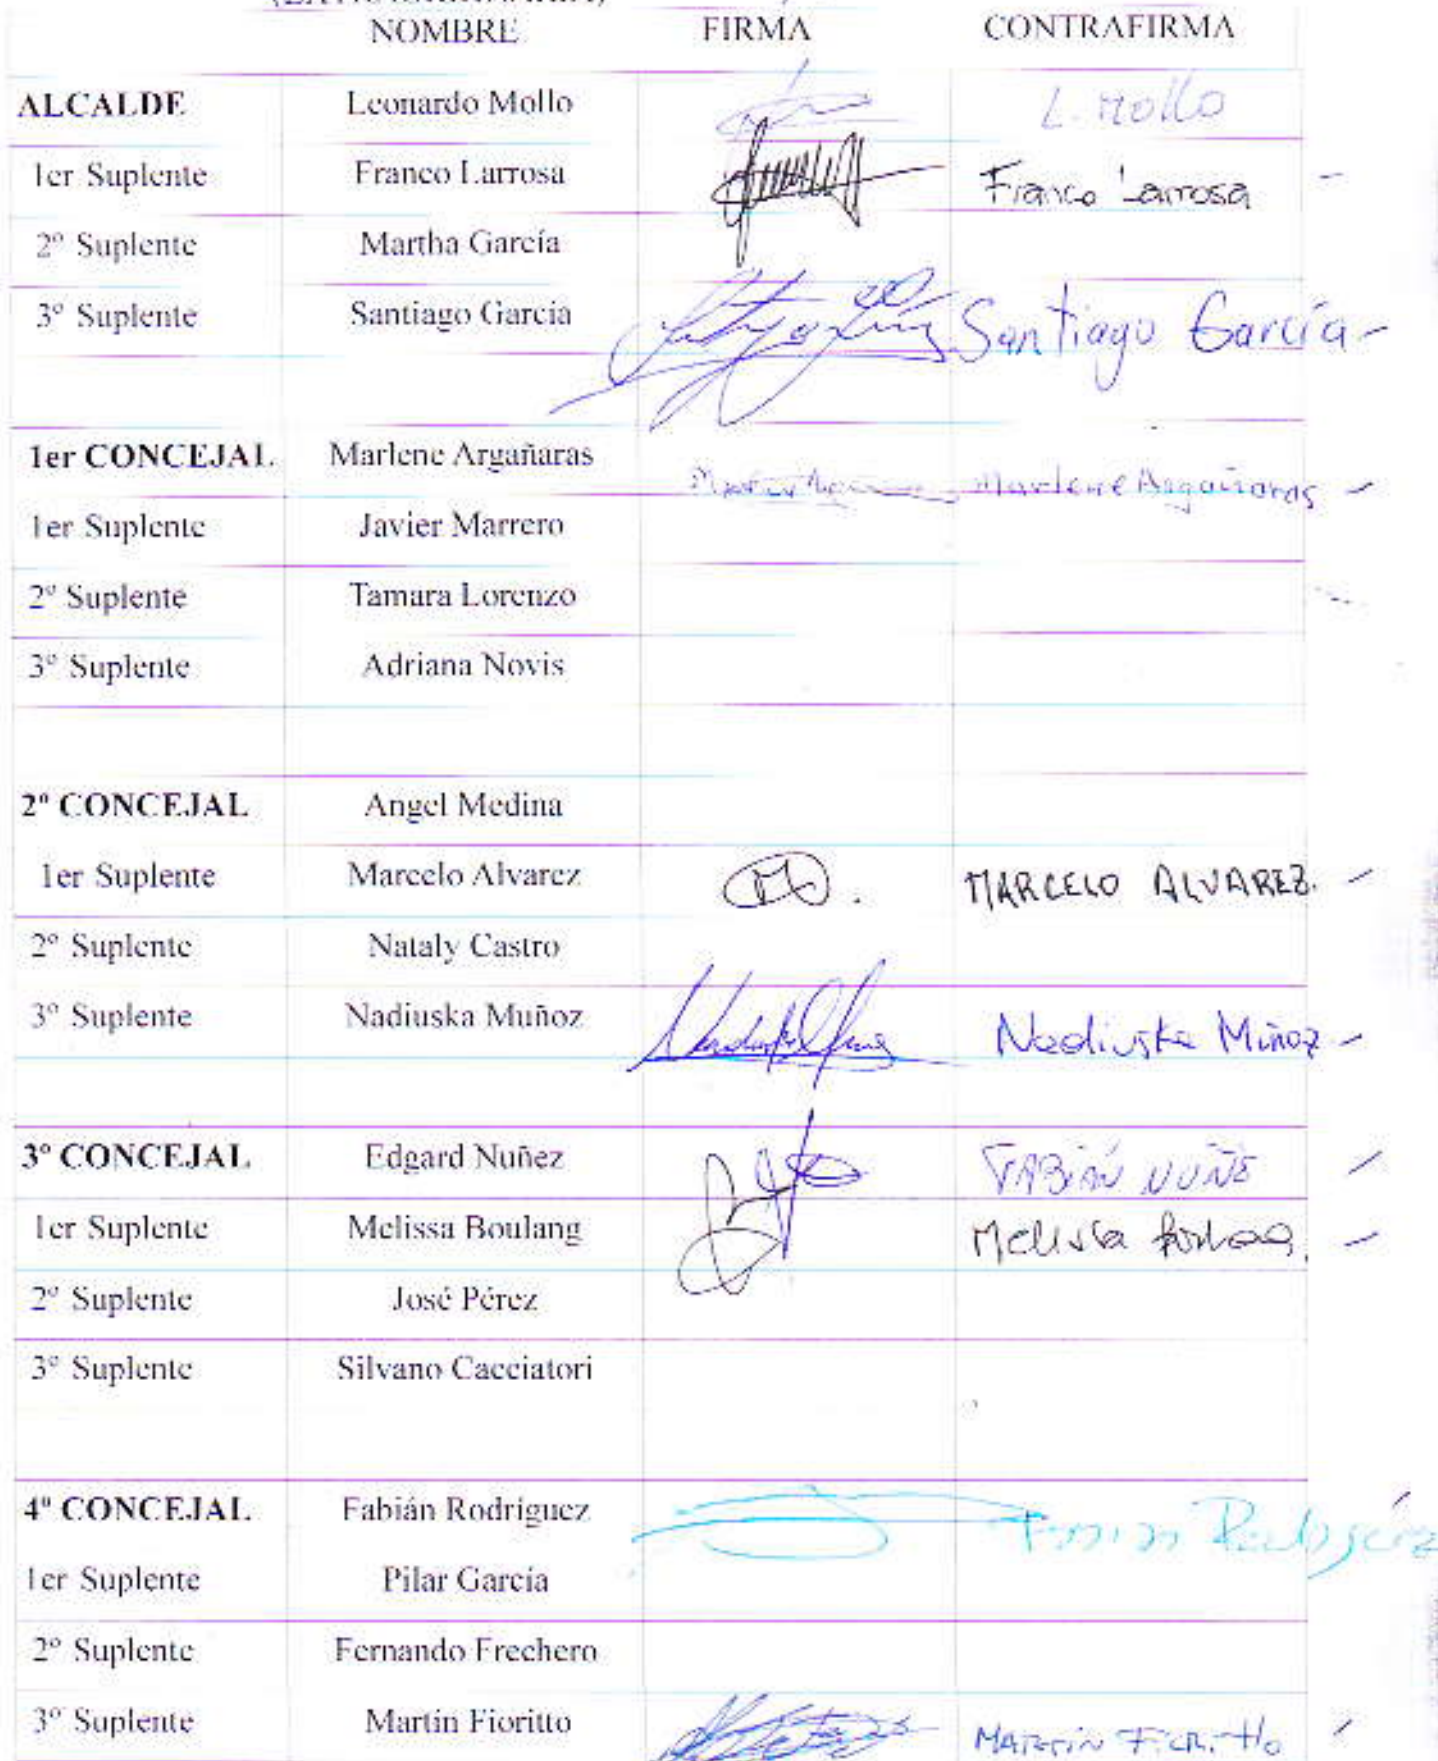 NOMBRE FIRMA CONTRAFIRMA
ALCALDE Leonardo Mollo L. Mollo
1er Suplente Franco Larrosa Franco Larrosa
2º Suplente Martha García
3º Suplente Santiago García Santiago García
1er CONCEJAL Marlene Argañaras Marlene Argañaras
1er Suplente Javier Marrero
2º Suplente Tamara Lorenzo
3º Suplente Adriana Novis
2º CONCEJAL Angel Medina
1er Suplente Marcelo Alvarez MARCELO ALVAREZ.
2º Suplente Nataly Castro
3º Suplente Nadiuska Muñoz Nadiuska Muñoz
3º CONCEJAL Edgard Nuñez FABIÁN NUÑE
1er Suplente Melissa Boulang Melissa
2º Suplente José Pérez
3º Suplente Silvano Cacciatori
4º CONCEJAL Fabián Rodríguez
1er Suplente Pilar García
2º Suplente Fernando Frechero
3º Suplente Martín Fioritto MARTÍN FIORITTO